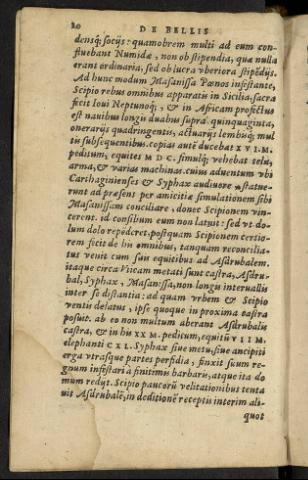 20 DE BELLIS
densq; socijs: quamobrem multi ad eum con-
fluebant Numidæ, non ob stipendia, quæ nulla
erant ordinaria, sed ob lucra vberiora stipẽdijs.
Ad hunc modum Masanissa Pœnos infestante,
Scipio rebus omnibus apparatis in Sicilia, sacra
fecit Ioui Neptunoq;, & in Africam profectus
est nauibus longis duabus supra quinquaginta,
onerarijs quadringentis, actuarijs lembisq; mul
tis subsequentibus. copias autẽ ducebat XVI.M.
peditum, equites MDC. simulq; vehebat tela,
arma, & varias machinas. cuius aduentum vbi
Carthaginienses & Syphax audiuere statue-
runt ad præsent per amicitiæ simulationem sibi
Masanissam conciliare, donec Scipionem vin-
cerent. id consilium eum non latuit: sed vt do-
lum dolo repẽderet. postquam Scipionem certio-
rem fecit de his omnibus, tanquam reconcilia-
tus venit cum suis equitibus ad Asdrubalem.
itaque circa Vticam metati sunt castra, Asdru-
bal, Syphax, Masanissa, non longis interuallis
inter se distantia: ad quam vrbem & Scipio
ventis delatus, ipse quoque in proxima castra
posuit. ab eo non multum aberant Asdrubalis
castra, & in his XX M. peditum, equitũ VII M
elephanti CXL. Syphax siue metu, siue ancipiti
erga vtrasque partes perfidia, finxit suum re-
gnum infestari à finitimis barbaris, atque ita do
mum redijt. Scipio paucorũ velitationibus tenta
uit Asdrubalẽ, in deditionẽ receptis interim ali-
quot